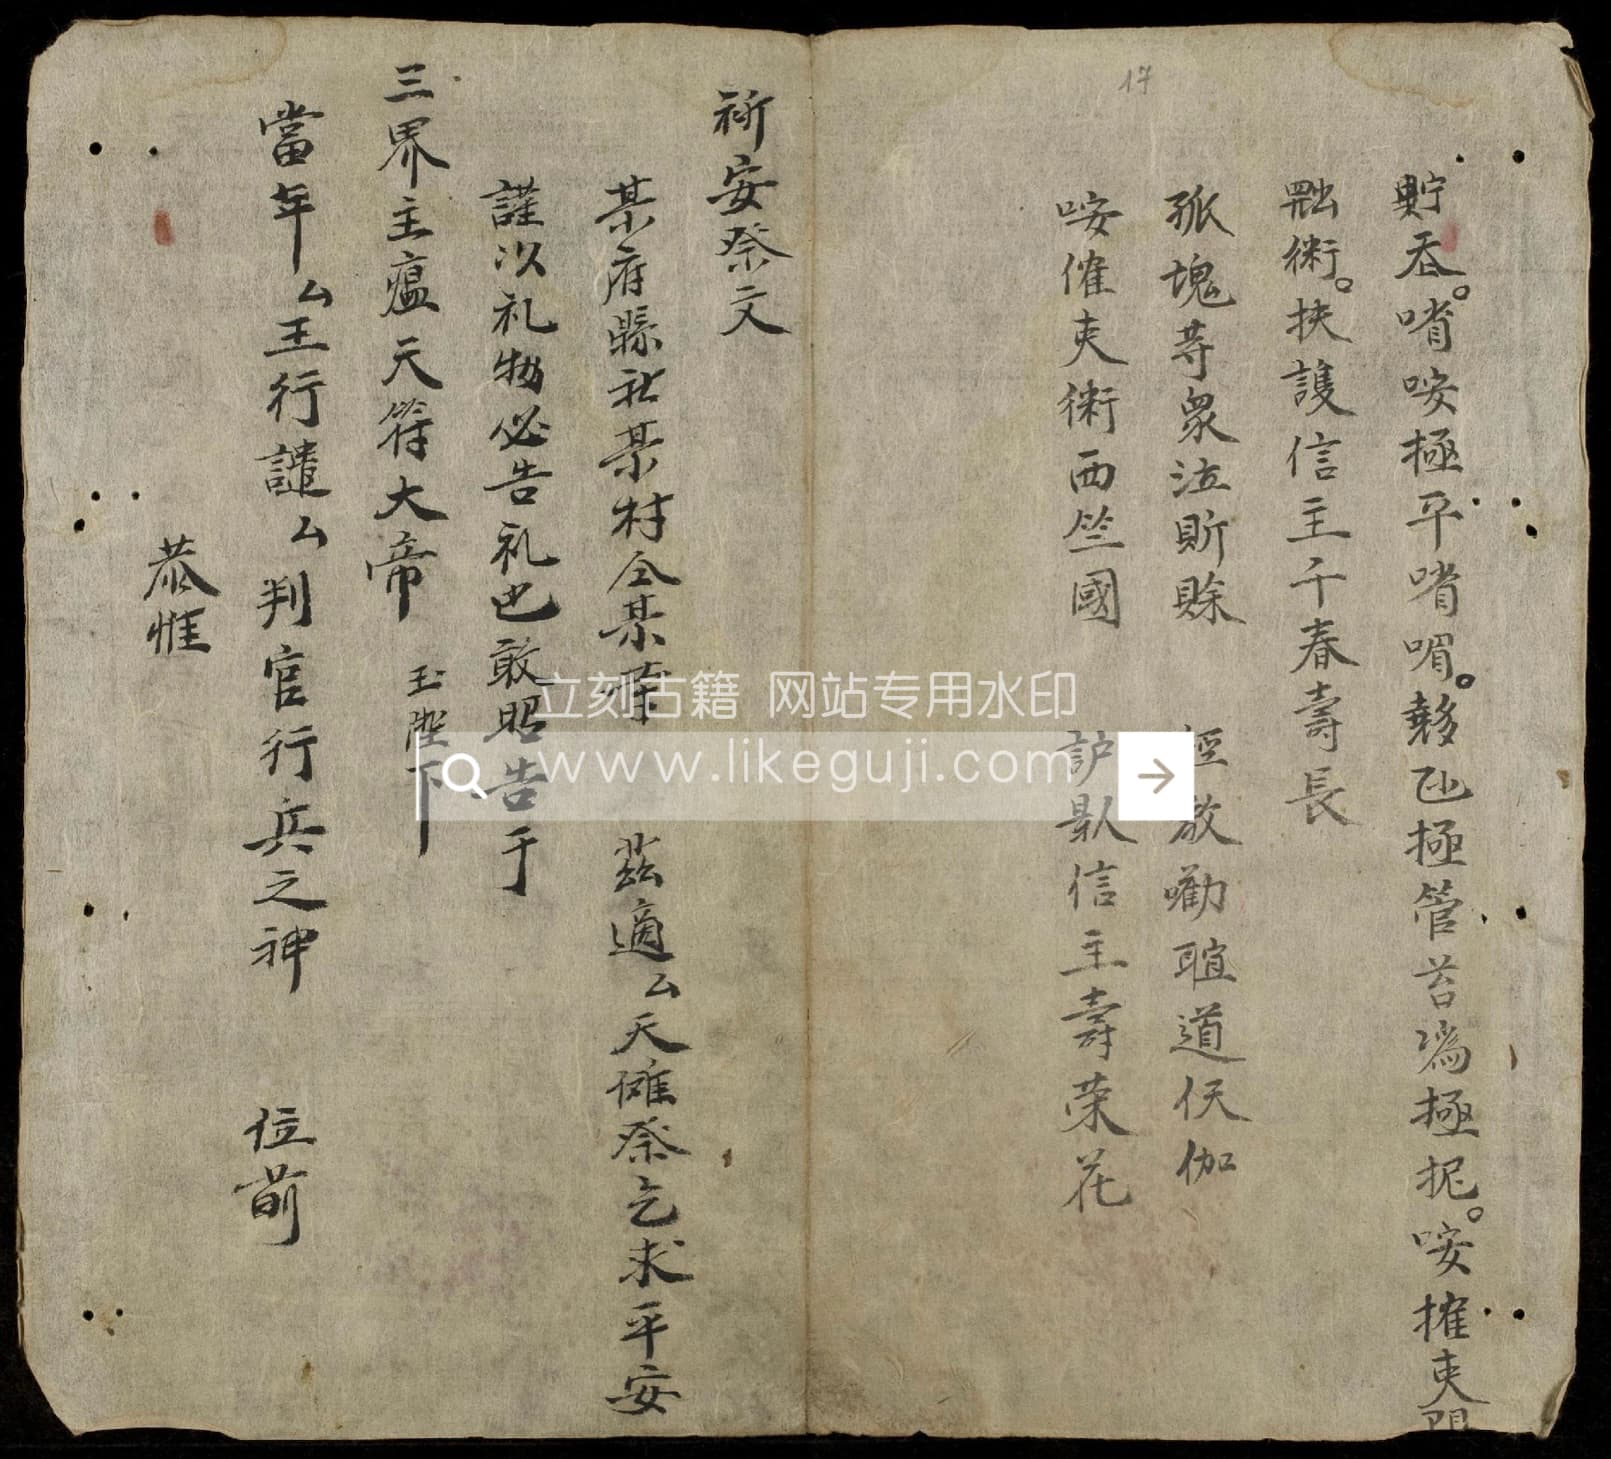 17
貯吞。唷咹極平唷喟。夥
極管苔為極抳。咹㩁夷
術。扶護信主千春壽長
孤塊等眾泣賒
啟勸道伕伽
咹㒛夷術西竺國
信主壽荣花
祈安祭文
某府縣社某村仝某等 茲適厶天儺祭乞求平安
謹以礼物必告礼也敢昭告于
三界主瘟天符大帝 玉陛下
當年厶王行譴厶判官行兵之神 位前
恭惟
立刻古籍 网站专用水印
www.likeguji.com